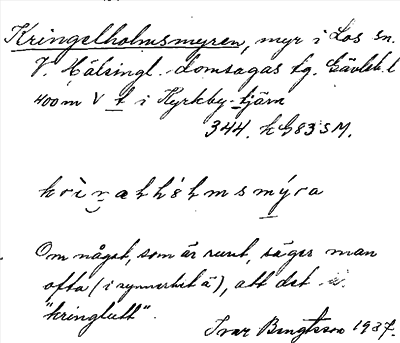 Kringelholmsmyren, myr i Los sn.
V. Hälsingl. domsagas tg. Gävleb. l
400 m V t i Kyrkby-tjärn
344. h G83 SM.
krìŋəlhólmsmýra
Om något, som är runt, säger man
ofta (i synnerhet ä), att det ä
"kringlutt".
Ivar Bengtsson 1937.